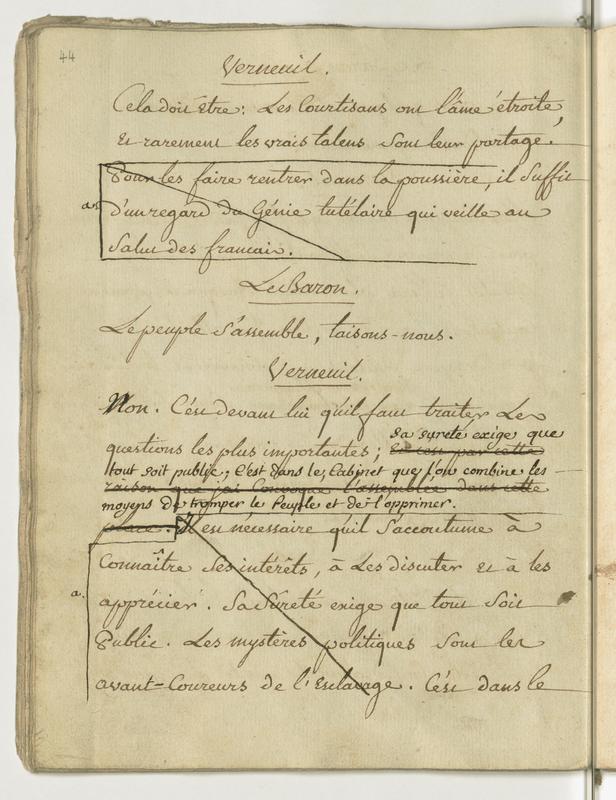 44
Verneuil.
Cela doit être: Les Courtisans ont l'âme étroite,
Et rarement les vrais talens sont leur partage.
Pour les faire rentrer dans la poussière, il suffit
a. d'un regard du Génie tutélaire qui veille au
Salut des francais.
Le Baron.
Le peuple s'assemble, taisons-nous.
Verneuil.
Non. C'est devant lui qu'il faut traiter les
sa sureté exige que
questions les plus importantes; et c'est par cette
tout soit publié; c'est dans le Cabinet que l'on combine les
raison que j'ai Convoqué l'assemblée dans cette
moyens de tromper le Peuple et de l'opprimer.
place. Il est nécessaire qu'il s'accoutume à
Connaître ses intérêts, à Les discuter et à les
a. apprécier. Sa Sûreté exige que tout soit
Public. Les mystères politiques sont les
avant-Coureurs de l'Esclavage. C'est dans le